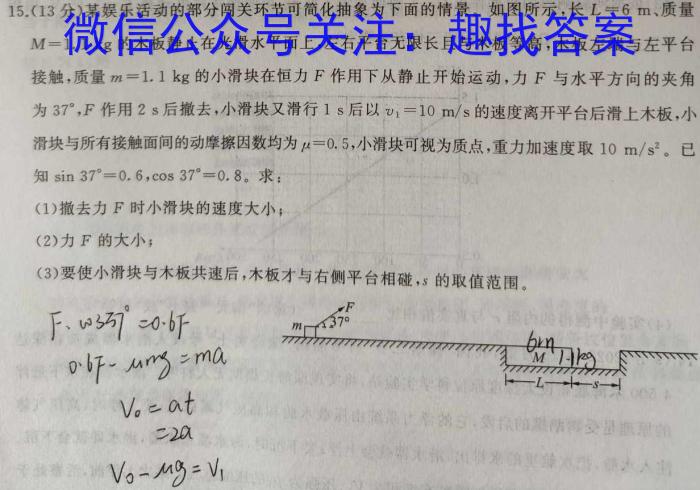 15.(13分)某娱乐活动的部分闯关环节可简化抽象为下面的情景。如图所示,长 L=6 m、质量
微信公众号关注:趣找答案
M=1 kg的木板静止在光滑水平面上,左右平台无限长且与木板等高,木板左端与左平台
接触,质量 m=1.1 kg 的小滑块在恒力 F 作用下从静止开始运动,力 F 与水平方向的夹角
为 37°,F 作用 2 s 后撤去,小滑块又滑行 1 s 后以 v₁=10 m/s 的速度离开平台后滑上木板,小
滑块与所有接触面间的动摩擦因数均为 μ=0.5,小滑块可视为质点,重力加速度取 10 m/s²。已
知 sin 37°=0.6,cos 37°=0.8。求:
(1)撤去力 F 时小滑块的速度大小;
(2)力 F 的大小;
(3)要使小滑块与木板共速后,木板才与右侧平台相碰,s 的取值范围。
F·cos37°=0.6F
0.6F-μmg=ma
V₀=at
=2a
V₀-μg=V₁
F
m
37°
6m
M
1.1kg
L
s